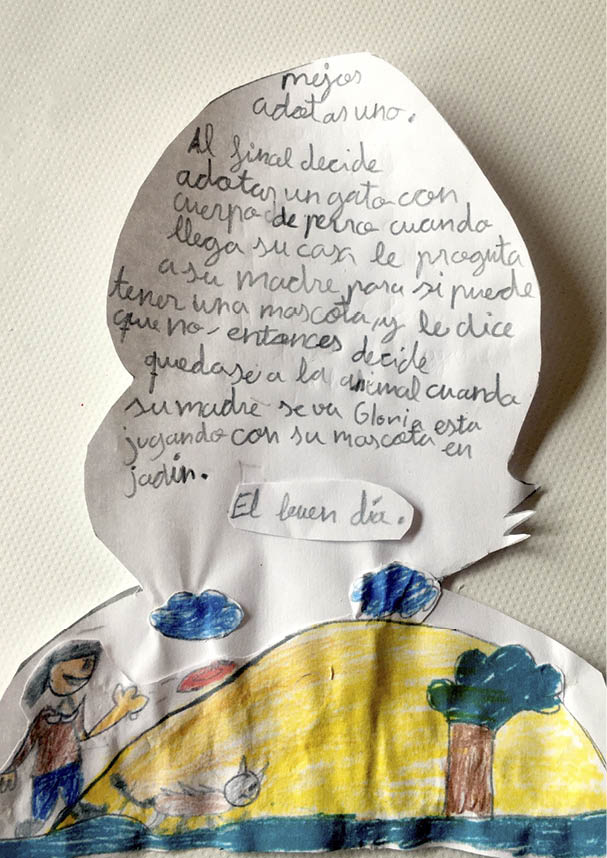 mejor
adotar uno.
Al final decide
adotar un gato con
cuerpo de perro cuando
llega su casa le progunta
a su madre para si puede
tener una mascota, y le dice
que no- entonces decide
quedase a la animal cuando
su madre se va Gloria esta
jugando con su mascota en
jadín.
El buen día.